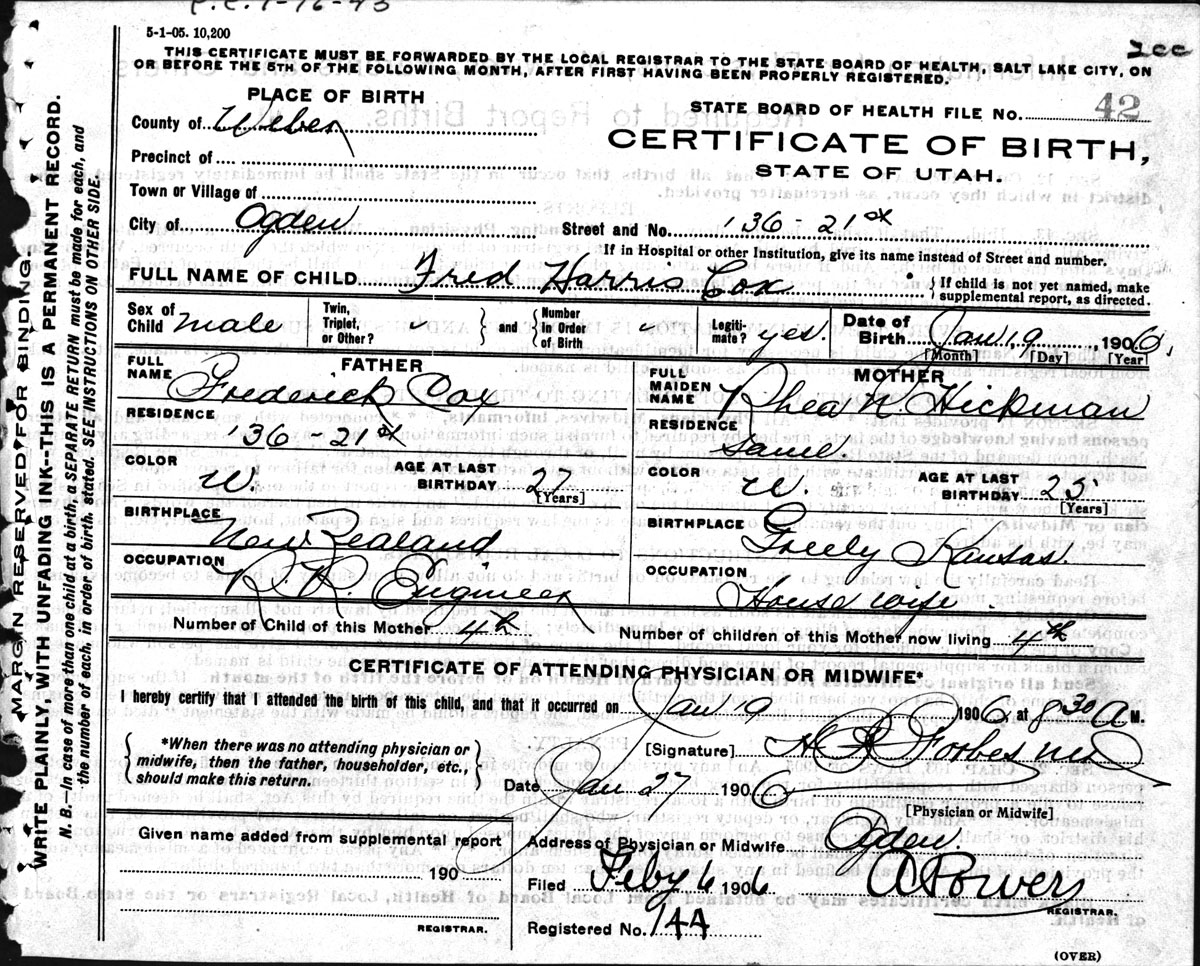 P.C. 1-16-43
5-1-05. 10,200
THIS CERTIFICATE MUST BE FORWARDED BY THE LOCAL REGISTRAR TO THE STATE BOARD OF HEALTH, SALT LAKE CITY, ON
OR BEFORE THE 5TH OF THE FOLLOWING MONTH, AFTER FIRST HAVING BEEN PROPERLY REGISTERED.
PLACE OF BIRTH
STATE BOARD OF HEALTH FILE No. 42
County of Weber
CERTIFICATE OF BIRTH,
Precinct of
STATE OF UTAH.
Town or Village of
City of Ogden Street and No. 136 - 21st
If in Hospital or other Institution, give its name instead of Street and number.
FULL NAME OF CHILD Fred Harris Cox { If child is not yet named, make supplemental report, as directed.
Sex of Child male Twin, Triplet, or Other? " } and { Number in Order of Birth " Legiti-mate? yes. Date of Birth Jan 19, 1906,
[Month] [Day] [Year]
FATHER MOTHER
FULL NAME Frederick Cox FULL MAIDEN NAME Rhea N. Hickman
RESIDENCE 136 - 21st RESIDENCE Same.
COLOR W. AGE AT LAST BIRTHDAY 27 [Years] COLOR W. AGE AT LAST BIRTHDAY 25 [Years]
BIRTHPLACE New Zealand BIRTHPLACE Greely Kansas.
OCCUPATION R. R. Engineer OCCUPATION House wife.
Number of Child of this Mother 4th Number of children of this Mother now living 4th
CERTIFICATE OF ATTENDING PHYSICIAN OR MIDWIFE*
I hereby certify that I attended the birth of this child, and that it occurred on Jan 19 1906 at 8 30 A M.
{ *When there was no attending physician or midwife, then the father, householder, etc., should make this return. }
[Signature] Forbes MD
Date Jan 27 1906
[Physician or Midwife]
Given name added from supplemental report
Address of Physician or Midwife Ogden.
190
Filed Feby 6 1906 A Powers
REGISTRAR.
REGISTRAR.
Registered No. 14A
(OVER)
MARGIN RESERVED FOR BINDING.
WRITE PLAINLY, WITH UNFADING INK--THIS IS A PERMANENT RECORD.
N. B.—In case of more than one child at a birth, a SEPARATE RETURN must be made for each, and
the number of each, in order of birth, stated. SEE INSTRUCTIONS ON OTHER SIDE.